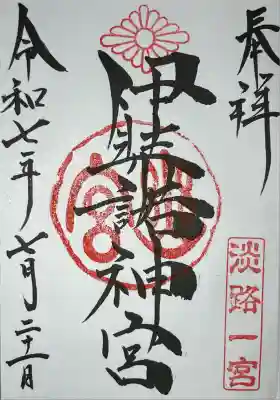 奉拝
淡路一宮
伊弉諾神宮
令和七年七月二十一日